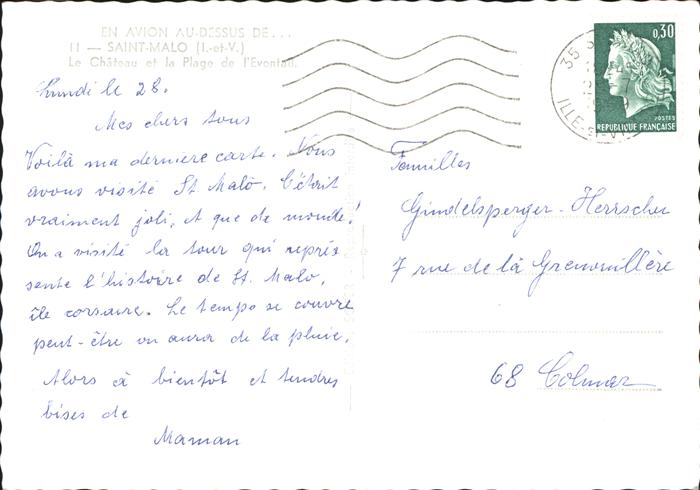 EN AVION AU-DESSUS DE...
11 — SAINT-MALO (I.-et-V.)
Le Château et la Plage de l'Eventail.
Lundi le 28.
Mes chers tous
Voilà ma dernière carte. Nous
avons visité St Malo. C'était
vraiment joli, et que de monde!
On a visité la tour qui repré
sente l'histoire de St. Malo,
île corsaire. Le temps se couvre
peut-être on aura de la pluie.
Alors à bientôt et tendres
bises de
Maman
0,30
POSTES
RÉPUBLIQUE FRANÇAISE
35 S
ILLE-ET-V
Familles
Gindelsperger - Herrscher
7 rue de la Grenouillère
68 Colmar